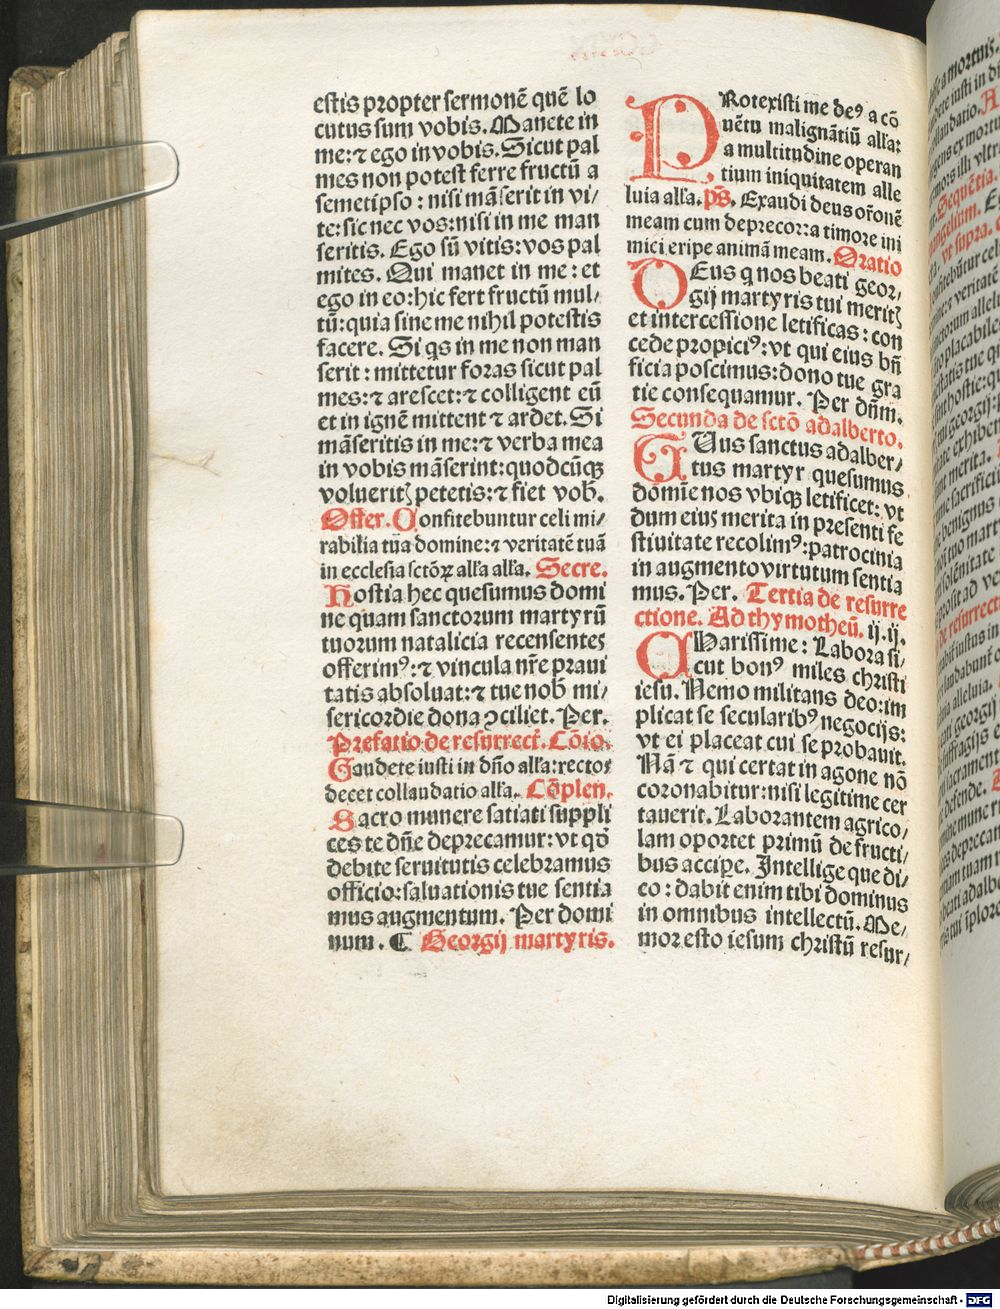 estis propter sermonē quē lo
cutus sum vobis. Manete in
me: ⁊ ego in vobis. Sicut pal
mes non potest ferre fructū a
semetipso : nisi māserit in vi/
te: sic nec vos: nisi in me man
seritis. Ego sū vitis: vos pal
mites. Qui manet in me : et
ego in eo: hic fert fructū mul/
tū: quia sine me nihil potestis
facere. Si qs in me non man
serit : mittetur foras sicut pal
mes: ⁊ arescet: ⁊ colligent eū
et in ignē mittent ⁊ ardet. Si
māseritis in me: ⁊ verba mea
in vobis māserint: quodcūqꝫ
volueritꝭ petetis: ⁊ fiet vob̄.
Offer. Confitebuntur celi mi/
rabilia tua domine: ⁊ veritatē tuā
in ecclesia sctōꝝ alľa alľa. Secre.
Hostia hec quesumus domi
ne quam sanctorum martyrū
tuorum natalicia recensentes
offerimꝰ: ⁊ vincula nr̄e praui
tatis absoluat: ⁊ tue nob̄ mi/
sericordie dona ꝯciliet. Per.
Prefatio de resurrect̄. Cōio.
Gaudete iusti in dn̄o alľa: rectos
decet collaudatio alľa. Cōplen.
Sacro munere satiati suppli
ces te dn̄e deprecamur: vt qō
debite seruitutis celebramus
officio: saluationis tue sentia
mus augmentum. Per domi
num. ¶ Georgij martyris.
PRotexisti me deꝰ a cō
uētu malignātiū alľa:
a multitudine operan
tium iniquitatem alle
luia alľa. ps̄. Exaudi deus or̄onē
meam cum deprecor: a timore ini
mici eripe animā meam. Oratio
DEus q nos beati geor/
gij martyris tui meritꝭ
et intercessione letificas : con
cede propiciꝰ: vt qui eius bn̄
ficia poscimus: dono tue gra
tie consequamur. Per dn̄m.
Secunda de sctō adalberto.
CUius sanctus adalber/
tus martyr quesumus
domīe nos vbiqꝫ letificet: vt
dum eius merita in presenti fe
stiuitate recolimꝰ: patrocinia
in augmento virtutum sentia
mus. Per. Tertia de resurre
ctione. Ad thymotheū. ij. ij.
CHarissime : Labora si/
cut bonꝰ miles christi
iesu. Nemo militans deo: im
plicat se secularibꝰ negocijs:
vt ei placeat cui se probauit.
Nā ⁊ qui certat in agone nō
coronabitur: nisi legitime cer
tauerit. Laborantem agrico/
lam oportet primū de fructi/
bus accipe. Intellige que di/
co : dabit enim tibi dominus
in omnibus intellectū. Me/
mor esto iesum christū resur/
Digitalisierung gefördert durch die Deutsche Forschungsgemeinschaft - DFG